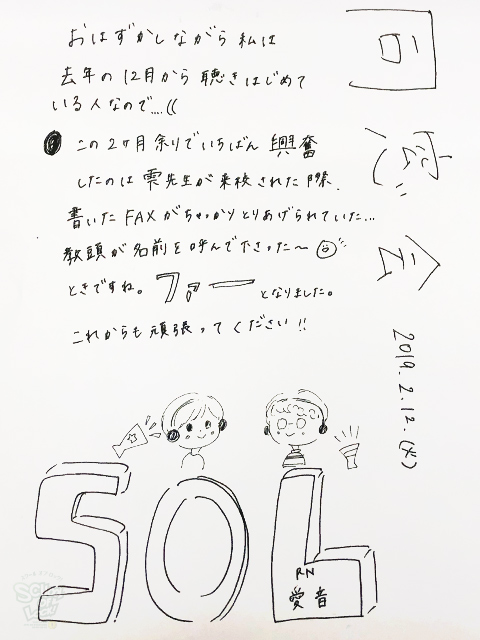 おはずかしながら私は
去年の12月から聴きはじめて
いる人なので....((
この2ヶ月余りでいちばん興奮
したのは雫先生が来校された際、
書いたFAXがちゃっかりとりあげられていた...
教頭が名前を呼んで下さった〜
ときですね。ファーとなりました。
これからも頑張ってください!!
2019.2.12.(火)
SOL
RN
愛音